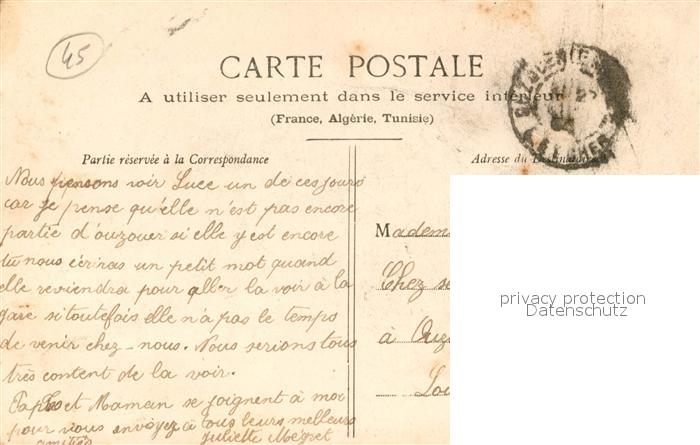 45
CARTE POSTALE
A utiliser seulement dans le service intérieur
(France, Algérie, Tunisie)
Partie réservée à la Correspondance
Adresse du Destinataire
Nous pensons voir Luce un de ces jours
car je pense qu'elle n'est pas encore
partie d'ouzouer si elle y est encore
tu nous écriras un petit mot quand
elle reviendra pour aller la voir à la
gare si toutefois elle n'a pas le temps
de venir chez-nous. Nous serions tous
très content de la voir.
et Maman se joignent à moi
pour vous envoyez à tous leurs meilleurs
amitiés Juliette Mégret
Madem
Chez se
à Ouz
Loi
privacy protection
Datenschutz